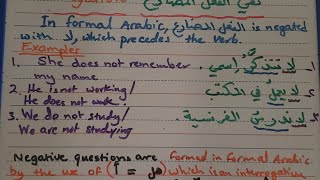 نفي الفعل المضارع
In formal Arabic, الفعل المضارع is negated
with لا, which precedes the verb.
Examples
1. She does not remember my name
لا تتذكّر اسمي.
2. He is not working/ He does not work.
3. We do not study/ We are not studying
لا ندرس الفرنسية.
Negative questions are formed in formal Arabic
by the use of (هل = أ) which is an interrogative